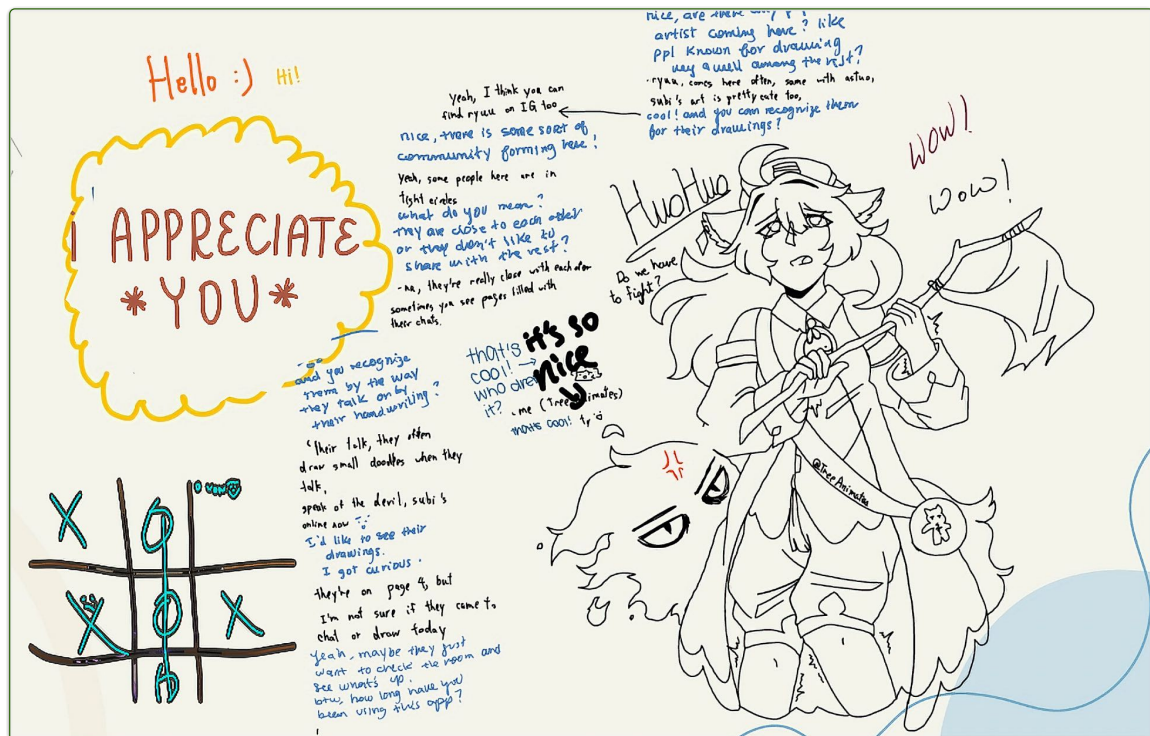 Hello :) Hi!
I APPRECIATE
*YOU*
nice, are there any
artist coming here? like
ppl known for drawing
very well among the rest?
-ryuu, comes here often, same with astuo,
subi's art is pretty cute too,
cool! and you can recognize them
for their drawings?
Yeah, I think you can
find ryuu on IG too
nice, there is some sort of
community forming here!
Yeah, some people here are in
tight circles
what do you mean?
they are close to each other
or they don't like to
share with the rest?
-na, they're really close with each other
sometimes you see pages filled with
their chats.
and you recognize
them by the way
they talk or by
their handwriting?
Their talk, they often
draw small doodles when they
talk,
speak of the devil, subi's
online now
I'd like to see their
drawings.
I got curious.
they're on page 4, but
I'm not sure if they came to
chat or draw today
yeah, maybe they just
want to check the room and
see what's up.
btw, how long have you
been using this app?
that's
cool! →
who drew
it?
-me (TreeAnimates)
that's cool! ty
it's so
nice
HuoHuo
Do we have
to fight?
WOW!
WOW!
@TreeAnimates
X O
X O X